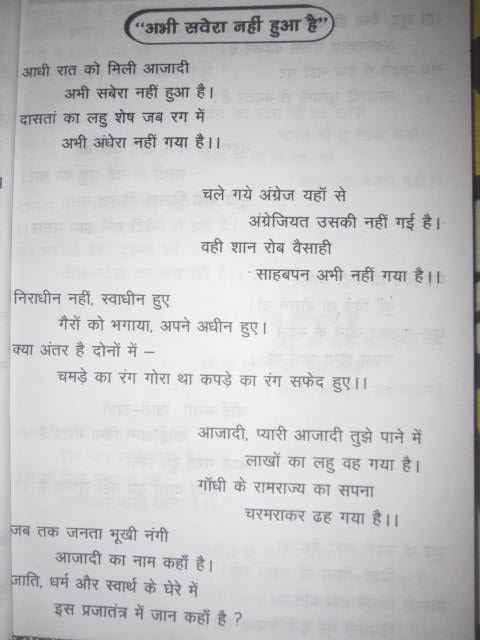 “अभी सवेरा नहीं हुआ है”
आधी रात को मिली आजादी
अभी सबेरा नहीं हुआ है।
दासतां का लहु शेष जब रग में
अभी अंधेरा नहीं गया है।।
चले गये अंग्रेज यहाॅ से
अंग्रेजियत उसकी नहीं गई है।
वही शान रोब वैसाही
साहबपन अभी नहीं गया है।।
निराधीन नहीं, स्वाधीन हुए
गैरों को भगाया, अपने अधीन हुए।
क्या अंतर है दोनों में –
चमड़े का रंग गोरा था कपड़े का रंग सफेद हुए।।
आजादी, प्यारी आजादी तुझे पाने में
लाखों का लहु वह गया है।
गाॅधी के रामराज्य का सपना
चरमराकर ढह गया है।।
जब तक जनता भूखी नंगी
आजादी का नाम कहाँ है।
जाति, धर्म और स्वार्थ के घेरे में
इस प्रजातंत्र में जान कहाँ है ?